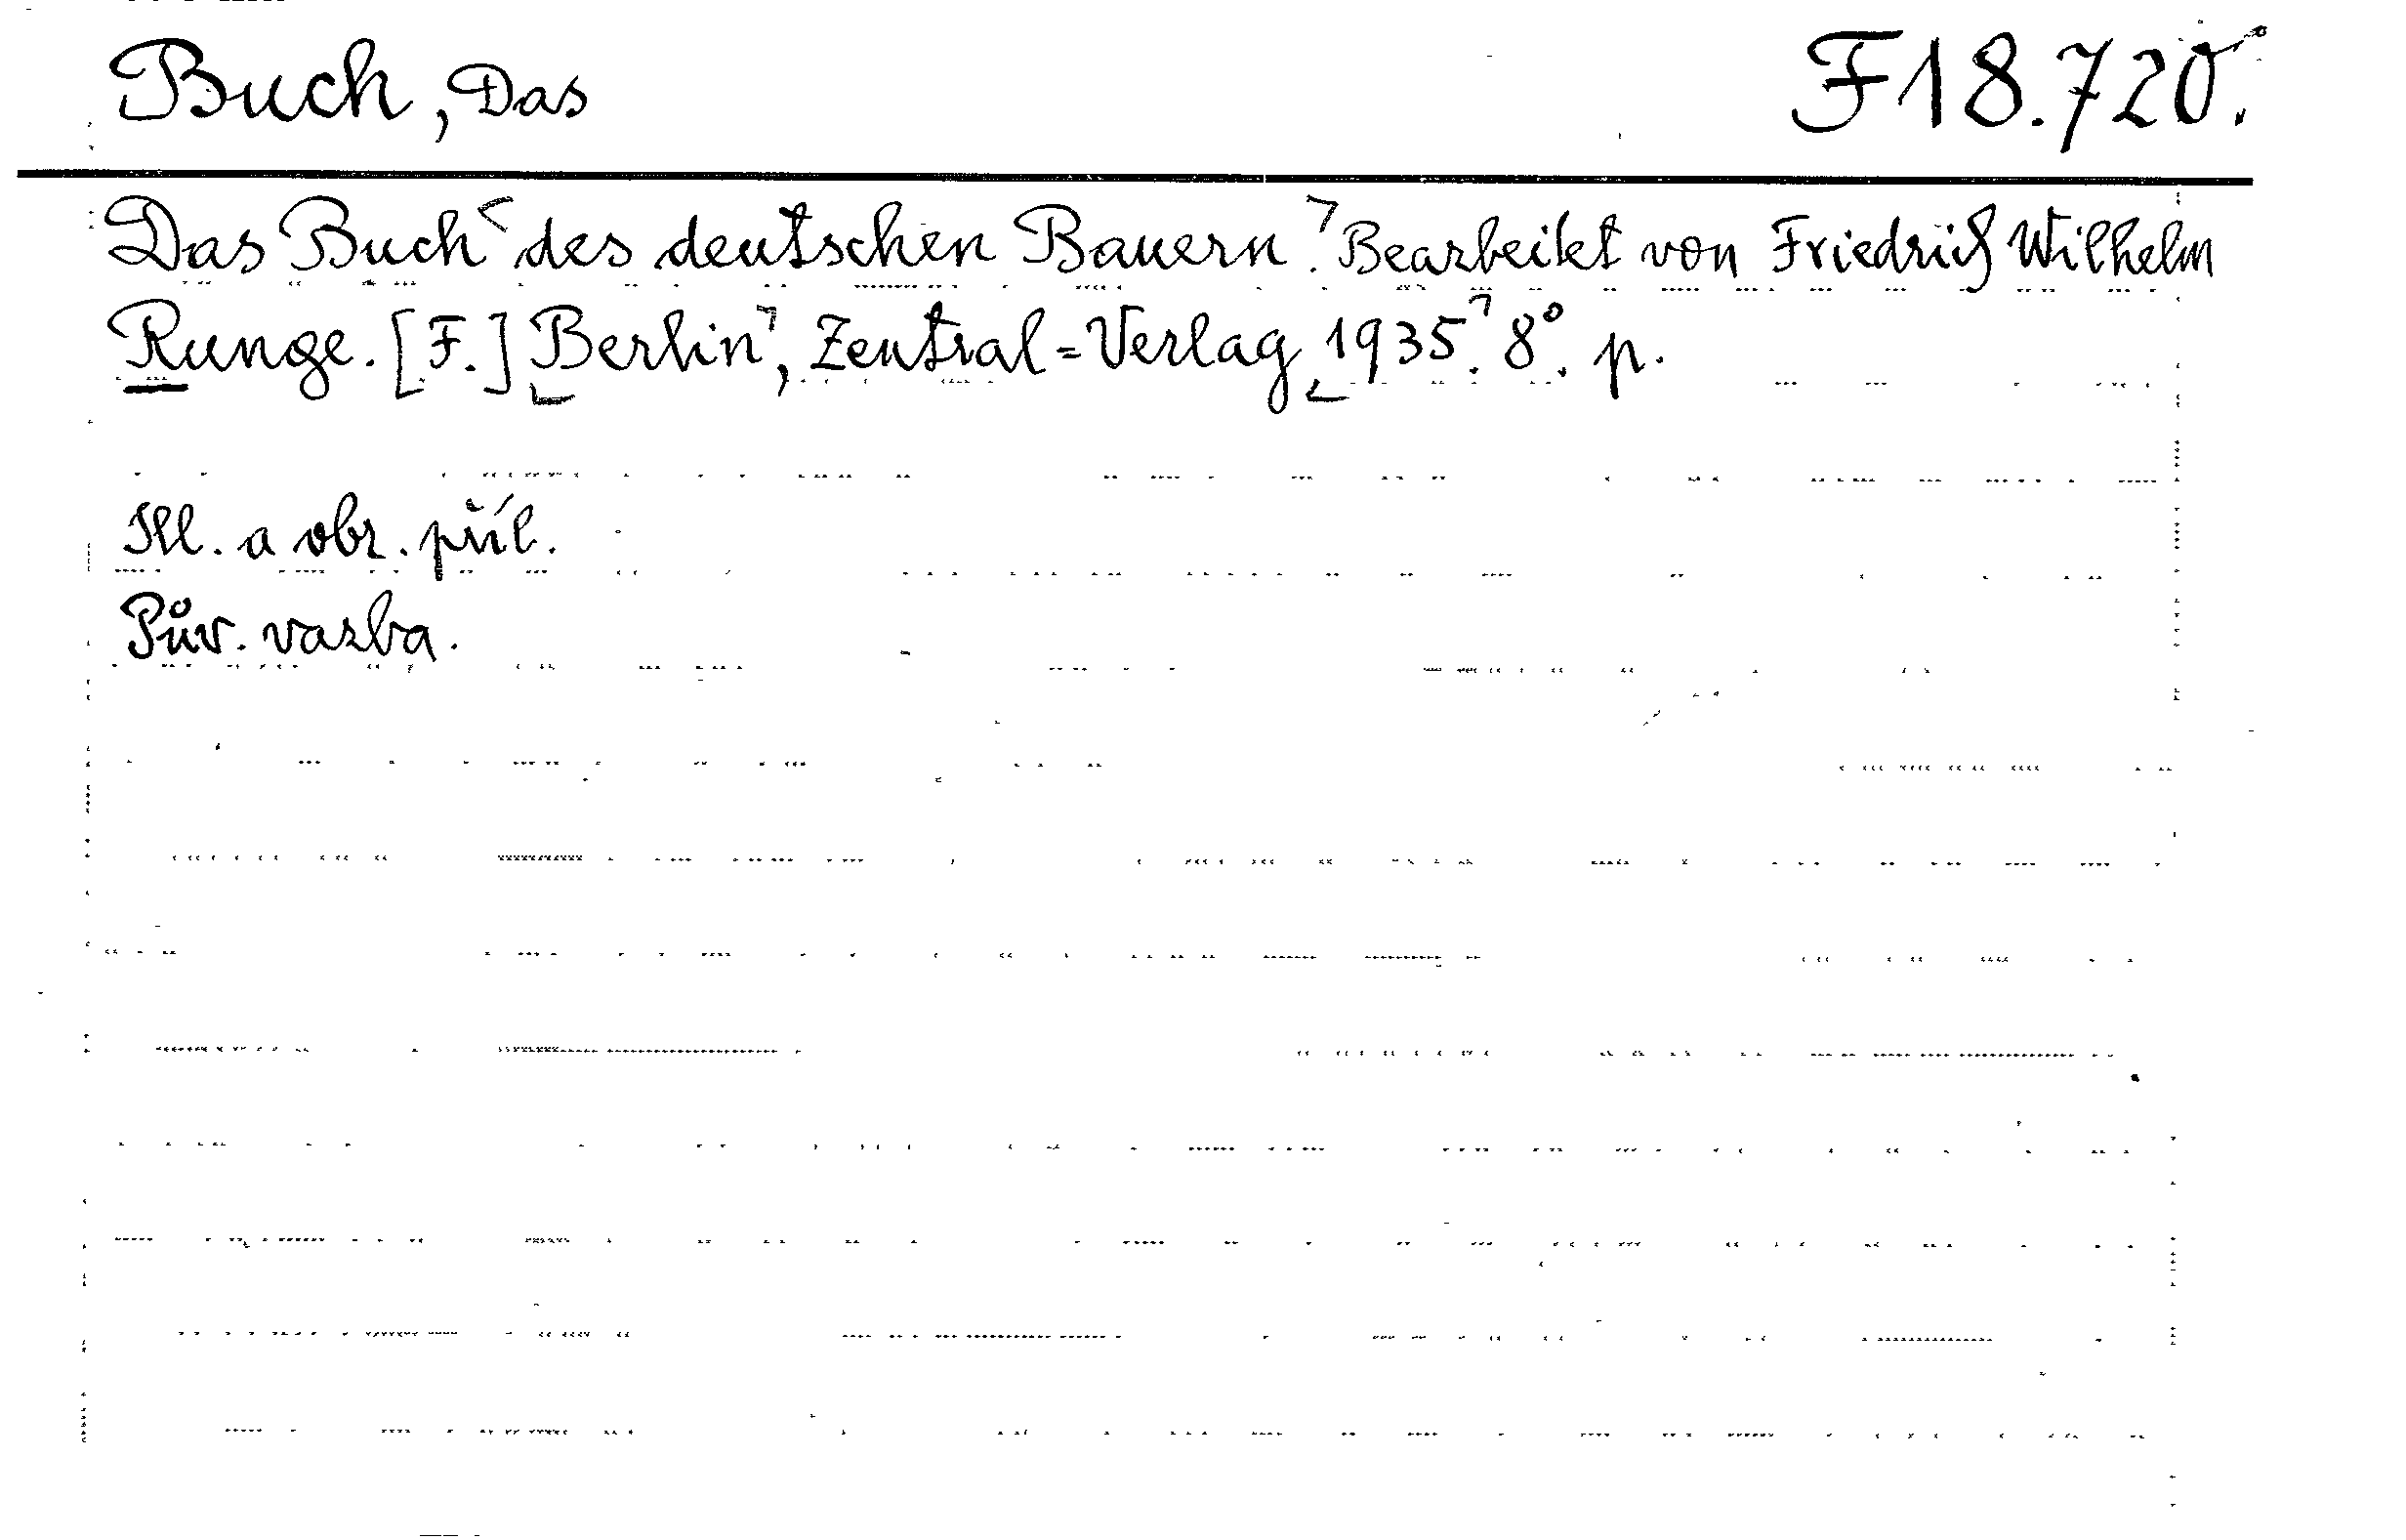 Buch, Das F 18.720.
Das Buch des deutschen Bauern. Bearbeitet von Friedrich Wilhelm
Runge. [F.] Berlin, Zentral=Verlag 1935. 8°. p.
Ill. a obr. příl.
Pův. vazba.